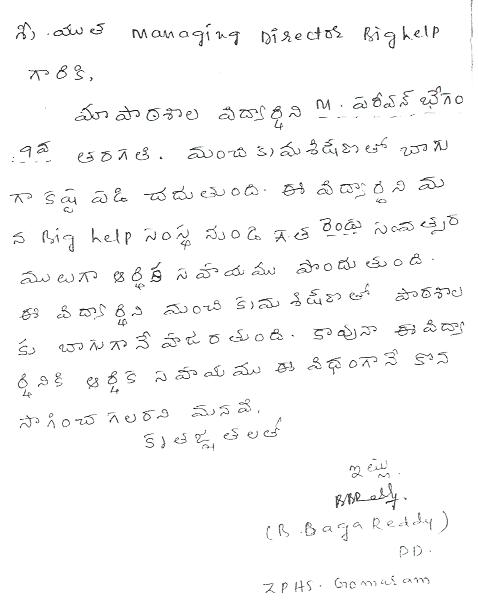 శ్రీ.యుత Managing Director Bighelp
గారికి,
మా పాఠశాల విద్యార్థిని M. పర్వీన్ భేగం
9వ తరగతి. మంచి క్రమశిక్షణతో బాగు
గా కష్ట పడి చదుతుంది. ఈ విద్యార్థిని మ
న Big help సంస్థ నుండి గత రెండు సంవత్సర
ములుగా ఆర్థిక సహాయము పొందుతుంది.
ఈ విద్యార్థిని మంచి క్రమశిక్షణతో పాఠశాల
కు బాగుగానే హాజరతుంది. కావునా ఈ విద్యా
ర్థినికి ఆర్థిక సహాయము ఈ విధంగానే కొన
సాగించగలరని మనవి.
కృతజ్ఞతలతో
ఇట్లు.
BBReddy.
(B. Baga Reddy)
P.D.
ZPHS. Gomaram